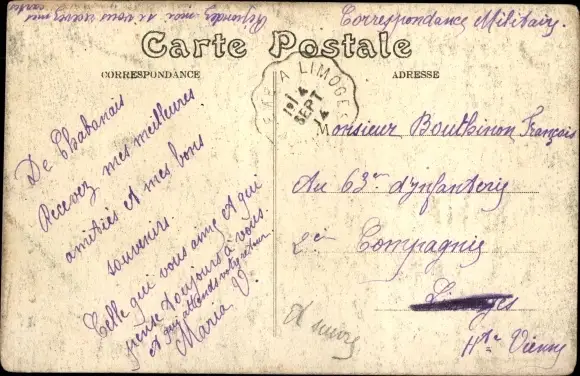 Répondez moi si vous recevez mes cartes
Correspondance Militaire
Carte Postale
CORRESPONDANCE
ADRESSE
A LIMOGES
4
SEPT
14
De Chabanais
Recevez mes meilleures
amitiés et mes bons
souvenirs.
Celle qui vous aime et qui
pense toujours à vous.
et qui attends votre retour
Maria V.
Monsieur Bouthinon François
Au 63er d'infanterie
2e Compagnie
Limoges
Hte Vienne
A suivre